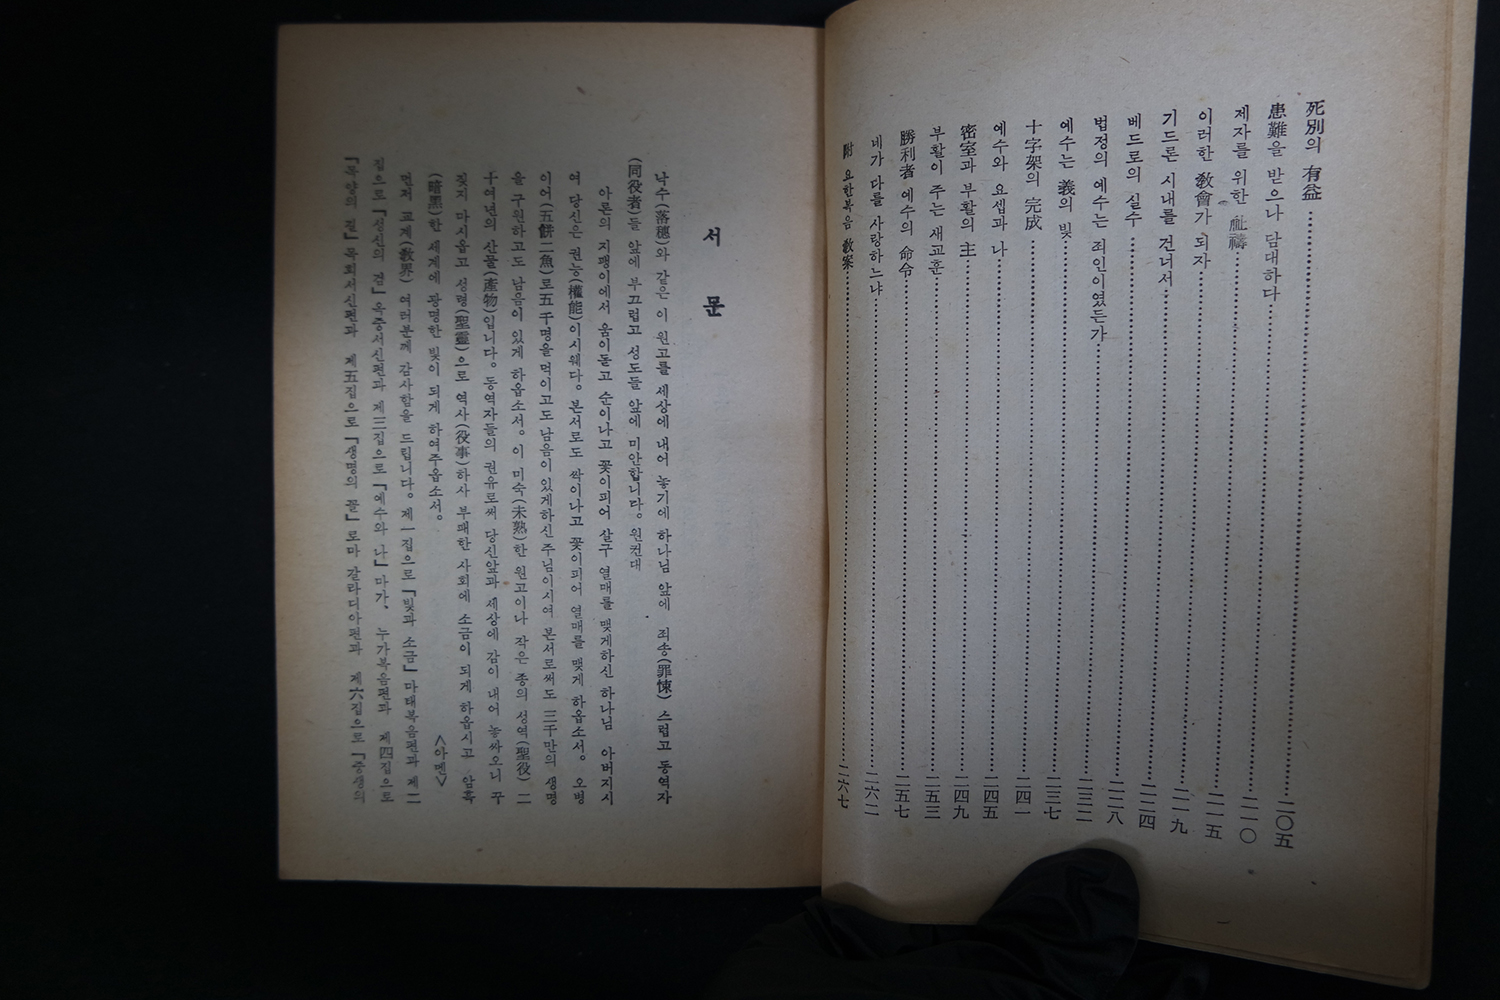 死別의 有益 二〇五
患難을 받으나 담대하다 二一〇
제자를 위한 祉禱 二一五
이러한 敎會가 되자 二一九
기드론 시내를 건너서 二二四
베드로의 실수 二二八
법정의 예수는 죄인이였든가 二三二
예수는 義의 빛 二三七
十字架의 完成 二四一
예수와 요셉과 나 二四五
密室과 부활의 主 二四九
부활이 주는 새교훈 二五三
勝利者 예수의 命令 二五七
네가 나를 사랑하느냐 二六二
附 요한복음 敎案 二六七
서 문
낙수(落穗)와 같은 이 원고를 세상에 내어 놓기에 하나님 앞에 죄송(罪悚) 스럽고 동역자
(同役者)들 앞에 부끄럽고 성도들 앞에 미안합니다. 원컨대
아론의 지팽이에서 움이돋고 순이나고 꽃이피어 살구 열매를 맺게하신 하나님 아버지시
여 당신은 권능(權能)이시웨다. 본서로도 싹이나고 꽃이피어 열매를 맺게 하옵소서. 오병
이어(五餠二魚)로 五千명을 먹이고도 남음이 있게하신 주님이시여 본서로써도 三千만의 생명
을 구원하고도 남음이 있게 하옵소서. 이 미숙(未熟)한 원고이나 작은 종의 성역(聖役) 二
十여년의 산물(產物)입니다. 동역자들의 권유로써 당신앞과 세상에 감이 내어 놓싸오니 꾸
짖지 마시옵고 성령(聖靈)으로 역사(役事)하사 부패한 사회에 소금이 되게 하옵시고 암흑
(暗黑)한 세계에 광명한 빛이 되게 하여주옵소서. <아멘>
먼저 교계(敎界) 여러분께 감사함을 드립니다. 제一집으로 『빛과 소금』 마태복음편과 제二
집으로 『성신의 검』 옥중서신편과 제三집으로 『예수와 나』 마가、누가복음편과 제四집으로
『목양의 길』 목회서신편과 제五집으로 『생명의 꼴』 로마 갈라디아편과 제六집으로 『중생의